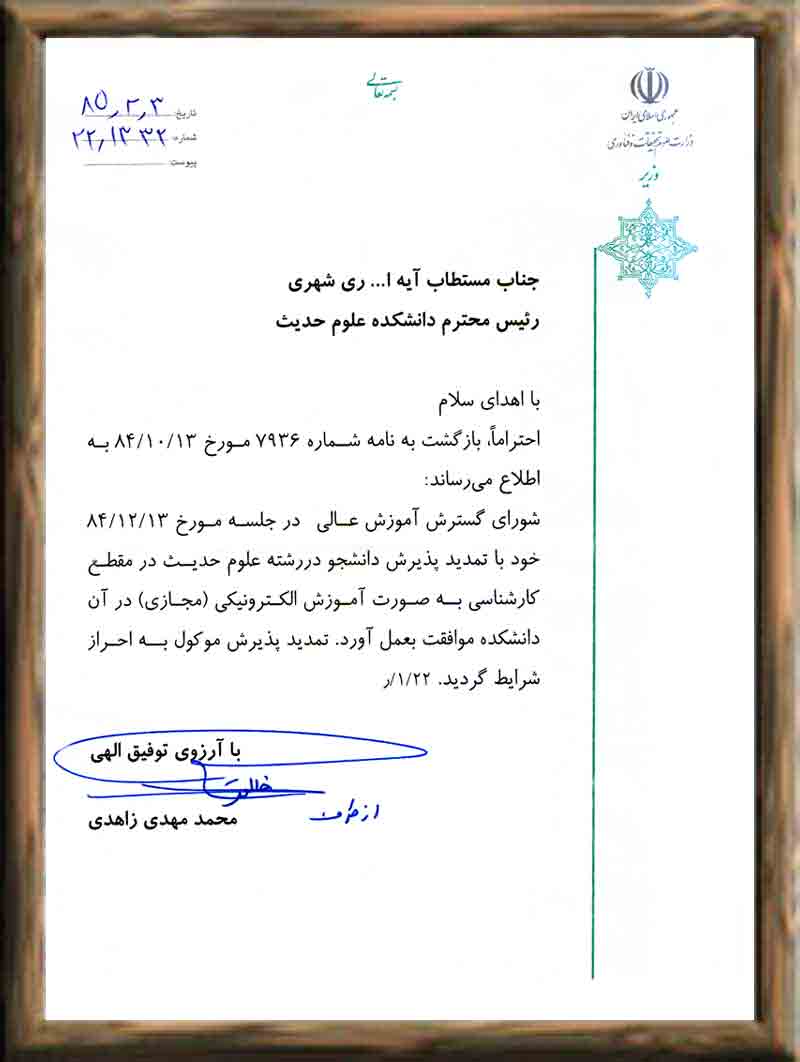 بسمه تعالی
جمهوری اسلامی ایران
وزارت علوم تحقیقات و فناوری
وزیر
تاریخ: ۸۵,۲,۳
شماره: ۲۲,۱۳۳۲
پیوست:
جناب مستطاب آیه ا... ری شهری
رئیس محترم دانشکده علوم حدیث
با اهدای سلام
احتراماً، بازگشت به نامه شماره ۷۹۳۶ مورخ ۸۴/۱۰/۱۳ به
اطلاع می‌رساند:
شورای گسترش آموزش عالی در جلسه مورخ ۸۴/۱۲/۱۳
خود با تمدید پذیرش دانشجو دررشته علوم حدیث در مقطع
کارشناسی به صورت آموزش الکترونیکی (مجازی) در آن
دانشکده موافقت بعمل آورد. تمدید پذیرش موکول به احراز
شرایط گردید. ۱/۲۲/ر
با آرزوی توفیق الهی
از طرف
محمد مهدی زاهدی